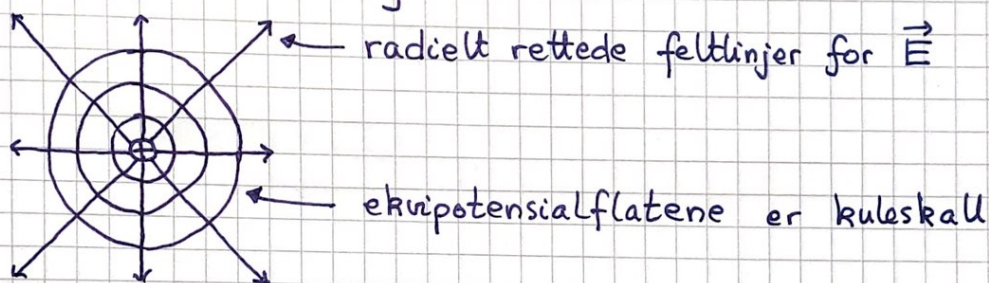 radielt rettede feltlinjer for E⃗
ekvipotensialflatene er kuleskall